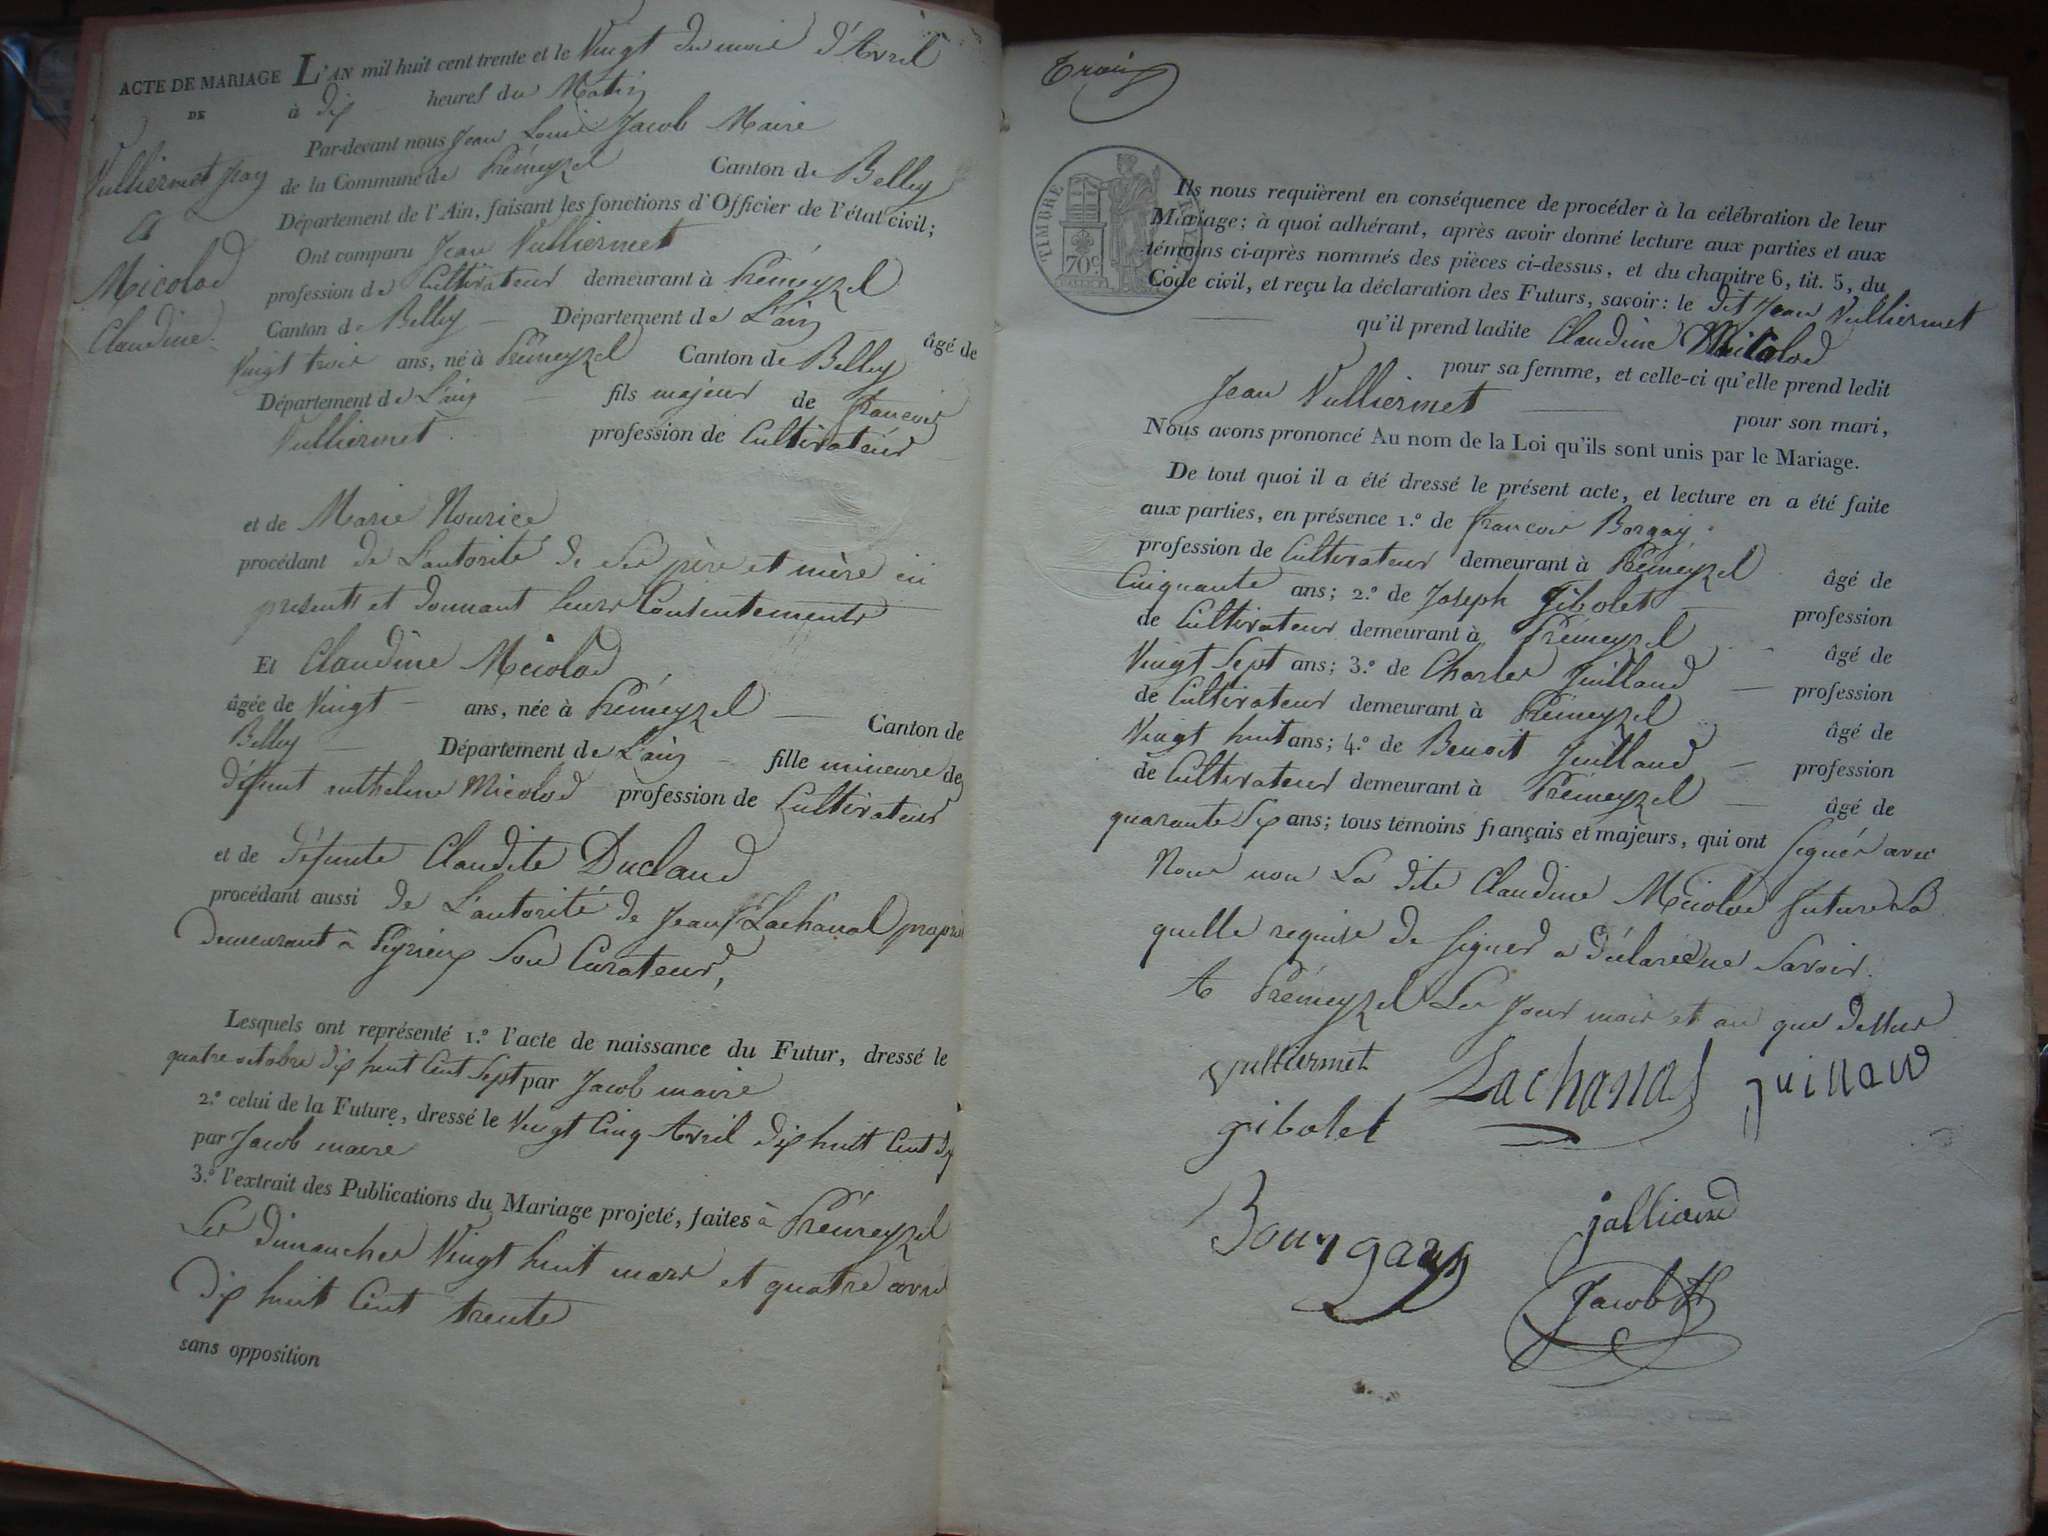 ACTE DE MARIAGE L'AN mil huit cent trente et le Vingt du mois d'Avril
DE
à dix heures du Matin
Par-devant nous Jean Louis Jacob Maire
de la Commune de Prémeyzel Canton de Belley
Département de l'Ain, faisant les fonctions d'Officier de l'état civil;
Vulliermet Jean
et
Micolod
Claudine.
Ont comparu Jean Vulliermet
profession de Cultivateur demeurant à Prémeyzel
Canton de Belley Département de L'ain âgé de
Vingt trois ans, né à Prémeyzel Canton de Belley
Département de L'ain fils majeur de francois
Vulliermet. profession de Cultivateur
et de Marie Nourice
procédant de L'autorité de Ses père et mère ici
presents et donnant leurs Consentements
Et Claudine Micolod
âgée de Vingt ans, née à Prémeyzel Canton de
Belley Département de L'ain fille mineure de
défunt anthelme Micolod profession de Cultivateur
et de défunte Claudite Duclaud
procédant aussi de L'autorité de Jean Lachanal propre
demeurant à Peyrieux Son Curateur,
Lesquels ont représenté 1.º l'acte de naissance du Futur, dressé le
quatre octobre dix huit Cent Sept par Jacob maire
2.º celui de la Future, dressé le Vingt Cinq Avril dix huit Cent dix
par Jacob maire
3.º l'extrait des Publications du Mariage projeté, faites à Prémeyzel
Les dimanches Vingt huit mars et quatre avril
dix huit Cent trente
sans opposition
Trois
TIMBRE
70c
Ils nous requièrent en conséquence de procéder à la célébration de leur
Mariage; à quoi adhérant, après avoir donné lecture aux parties et aux
témoins ci-après nommés des pièces ci-dessus, et du chapitre 6, tit. 5, du
Code civil, et reçu la déclaration des Futurs, savoir: le dit Jean Vulliermet
qu'il prend ladite Claudine Micolod
pour sa femme, et celle-ci qu'elle prend ledit
Jean Vulliermet pour son mari,
Nous avons prononcé Au nom de la Loi qu'ils sont unis par le Mariage.
De tout quoi il a été dressé le présent acte, et lecture en a été faite
aux parties, en présence 1.º de francois Borgay
profession de Cultivateur demeurant à Prémeyzel âgé de
Cinquante ans; 2.º de Joseph Gibolet profession
de Cultivateur demeurant à Prémeyzel âgé de
Vingt Sept ans; 3.º de Charles Juilland profession
de Cultivateur demeurant à Prémeyzel âgé de
Vingt huit ans; 4.º de Benoit Juilland profession
de Cultivateur demeurant à Prémeyzel âgé de
quarante Six ans; tous témoins français et majeurs, qui ont Signés avec
Nous non La dite Claudine Micolod future La
quelle requise de Signer a déclaré ne Savoir.
A Prémeyzel Les Jour mois et an que dessus
Vulliermet Lachanal juillard
gibolet
Bourgay jalliard
Jacob